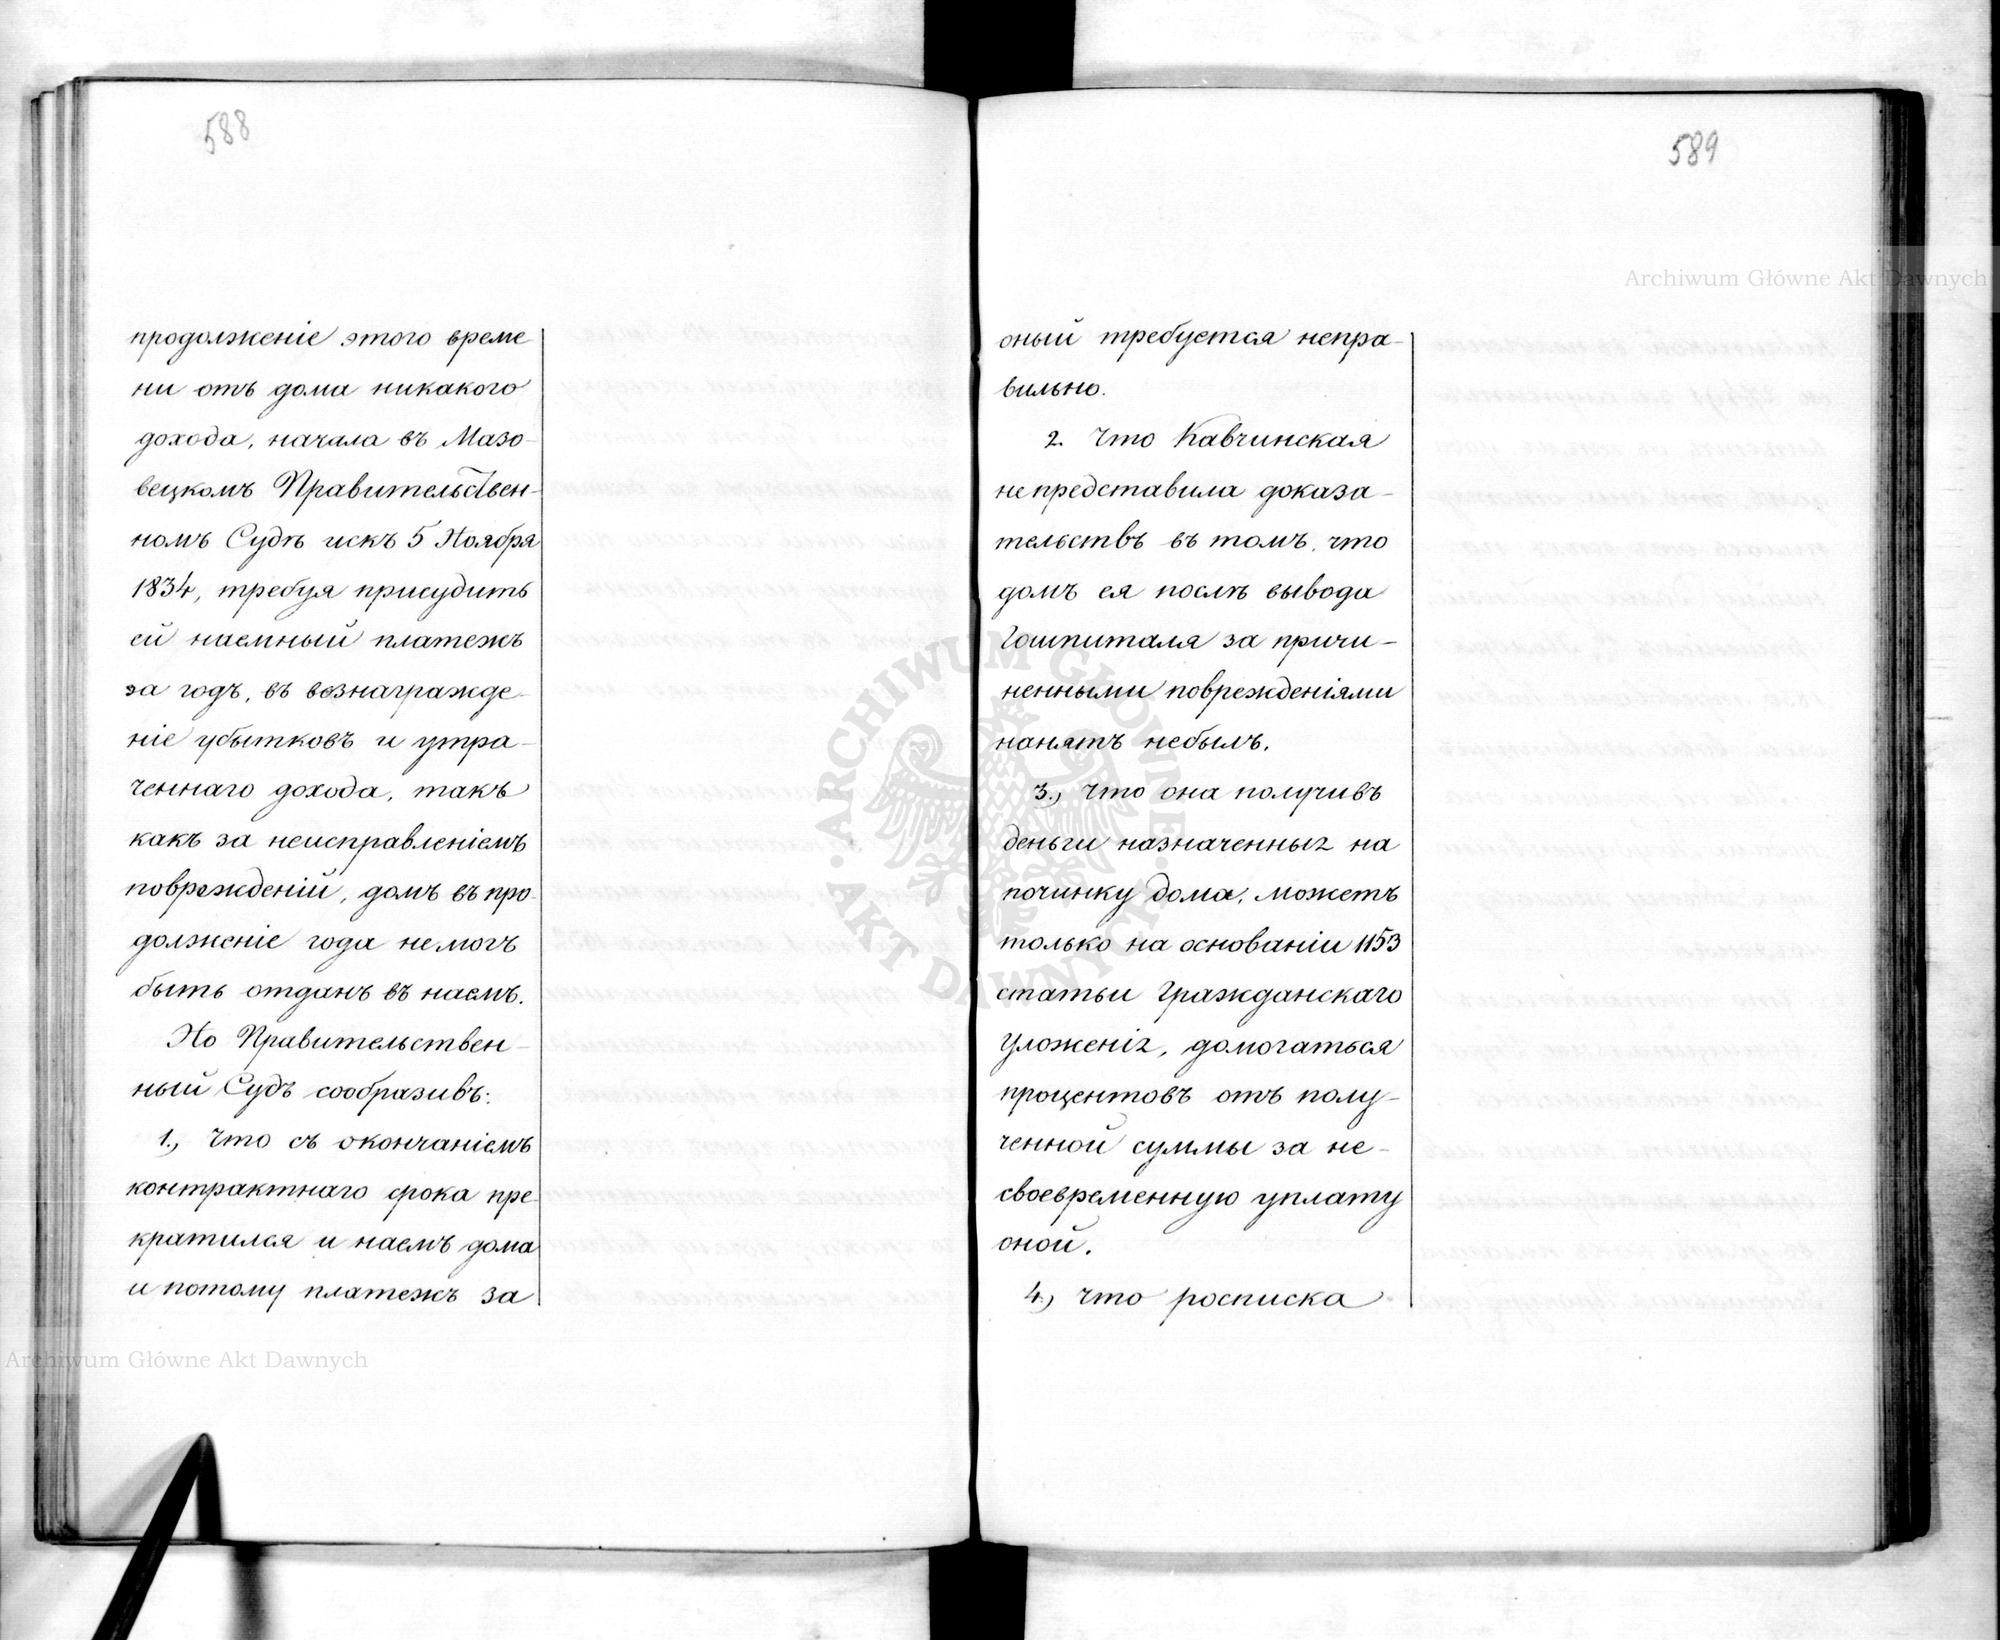 588
продолженіе этого време
ни отъ дома никакого
дохода, начала въ Мазо-
вецкомъ Правительствен-
номъ Судѣ искъ 5 Ноября
1834, требуя присудить
ей наемный платежъ
за годъ, въ вознагражде-
ніе убытковъ и утра-
ченнаго дохода, такъ
какъ за неисправленіемъ
поврежденій, домъ въ про-
долженіе года немогъ
быть отданъ въ наемъ.
Но Правительствен-
ный Судъ сообразивъ:
1., Что съ окончаніемъ
контрактнаго срока пре-
кратился и наемъ дома
и потому платежъ за
589
оный требуется непра-
вильно.
2. Что Кавчинская
непредставила доказа-
тельствъ въ томъ, что
домъ ея послѣ вывода
Гошпиталя за причи-
ненными поврежденіями
нанятъ небылъ.
3., Что она получивъ
деньги назначенныя на
починку дома, можетъ
только на основаніи 1153
статьи Гражданскаго
Уложенія, домогаться
процентовъ отъ полу-
ченной суммы за не-
своевременную уплату
оной.
4., Что росписка
Archiwum Główne Akt Dawnych
Archiwum Główne Akt Dawnych
· ARCHIWUM GŁÓWNE · AKT DAWNYCH